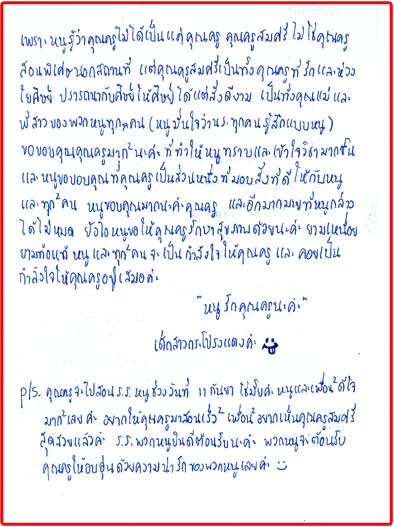 เพราะหนูรู้ว่าคุณครูไม่ได้เป็นแค่คุณครู คุณครูสมศรีไม่ใช่คุณครู
สอนพิเศษนอกสถานที่ แต่คุณครูสมศรีเป็นทั้งคุณครูที่รักและห่วง
ใยศิษย์ ปรารถนากับศิษย์ให้ศิษย์ได้แต่สิ่งดีงาม เป็นทั้งคุณแม่และ
พี่สาวของพวกหนูทุกๆคน (หนูมั่นใจว่านร.ทุกคนรู้สึกแบบหนู)
ขอขอบคุณคุณครูมากๆนะค่ะที่ทำให้หนูทราบและเข้าใจวิชามากขึ้น
และหนูขอขอบคุณที่คุณครูเป็นส่วนหนึ่งที่มอบสิ่งที่ดีให้กับหนู
และทุกๆคน หนูขอบคุณมากนะค่ะคุณครู และอีกมากมายที่หนูกล่าว
ได้ไม่หมด ยังไงหนูขอให้คุณครูรักษาสุขภาพด้วยนะค่ะ ยามเหนื่อย
ยามท้อแท้ หนูและทุกๆคนจะเป็นกำลังใจให้คุณครูและคอยเป็น
กำลังใจให้คุณครูอยู่เสมอค่ะ
"หนูรักคุณครูนะค่ะ"
เด็กสาวกระโปรงแดงค่ะ
P/S. คุณครูจะไปสอนร.ร.หนูช่วงวันที่ 11 กันยา ใช่มั้ยค่ะ หนูและเพื่อนๆดีใจ
มากๆเลยค่ะ อยากให้คุณครูมาสอนเร็วๆ เพื่อนๆอยากเห็นคุณครูสมศรี
สุดสวยแล้วค่ะ ร.ร.พวกหนูยินดีต้อนรับนะค่ะ พวกหนูจะต้อนรับ
คุณครูให้อบอุ่นด้วยความน่ารักของพวกหนูเลยค่ะ